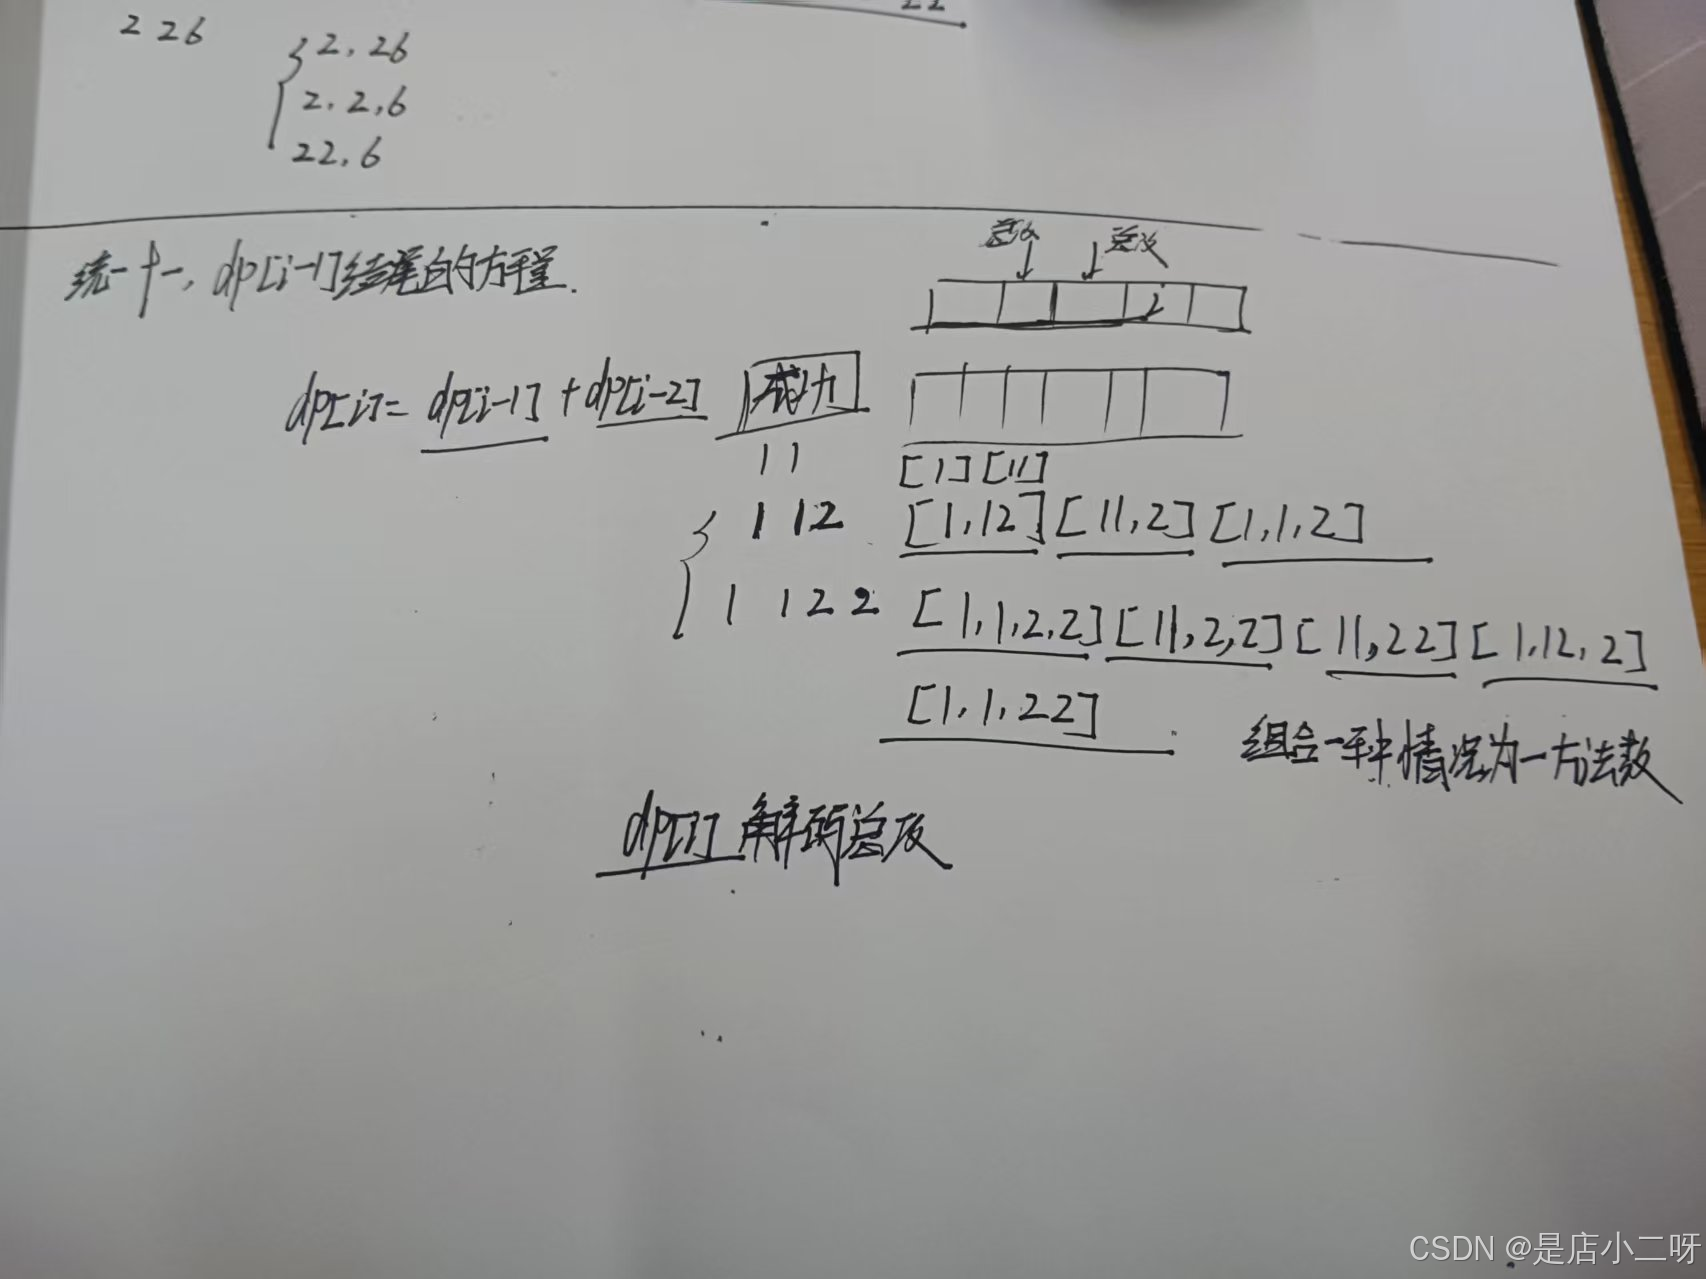 2 26
2, 26
2, 2, 6
22, 6
22
统一十一, dp[i-1]结尾的方程.
总次 总次
i
dp[i]= dp[i-1] + dp[i-2] 成功
1 1 [1] [11]
1 12 [1,12] [11,2] [1,1,2]
1 1 2 2 [1,1,2,2] [11,2,2] [11,22] [1,12,2]
[1,1,22]
组合一种情况为一方法数
dp[i] 解码总次
CSDN @是店小二呀